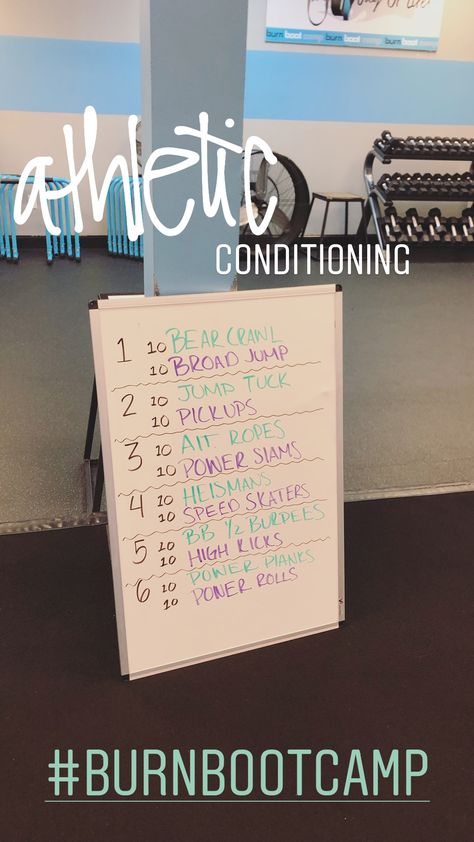 burn boot camp burn boot camp burn boot camp
athletic
CONDITIONING
1 10 BEAR CRAWL
10 BROAD JUMP
2 10 JUMP TUCK
10 PICKUPS
3 10 Alt. ROPES
10 POWER SLAMS
4 10 HEISMANS
10 SPEED SKATERS
5 10 BB 1/2 BURPEES
10 HIGH KICKS
6 10 POWER PLANKS
10 POWER ROLLS
#BURNBOOTCAMP